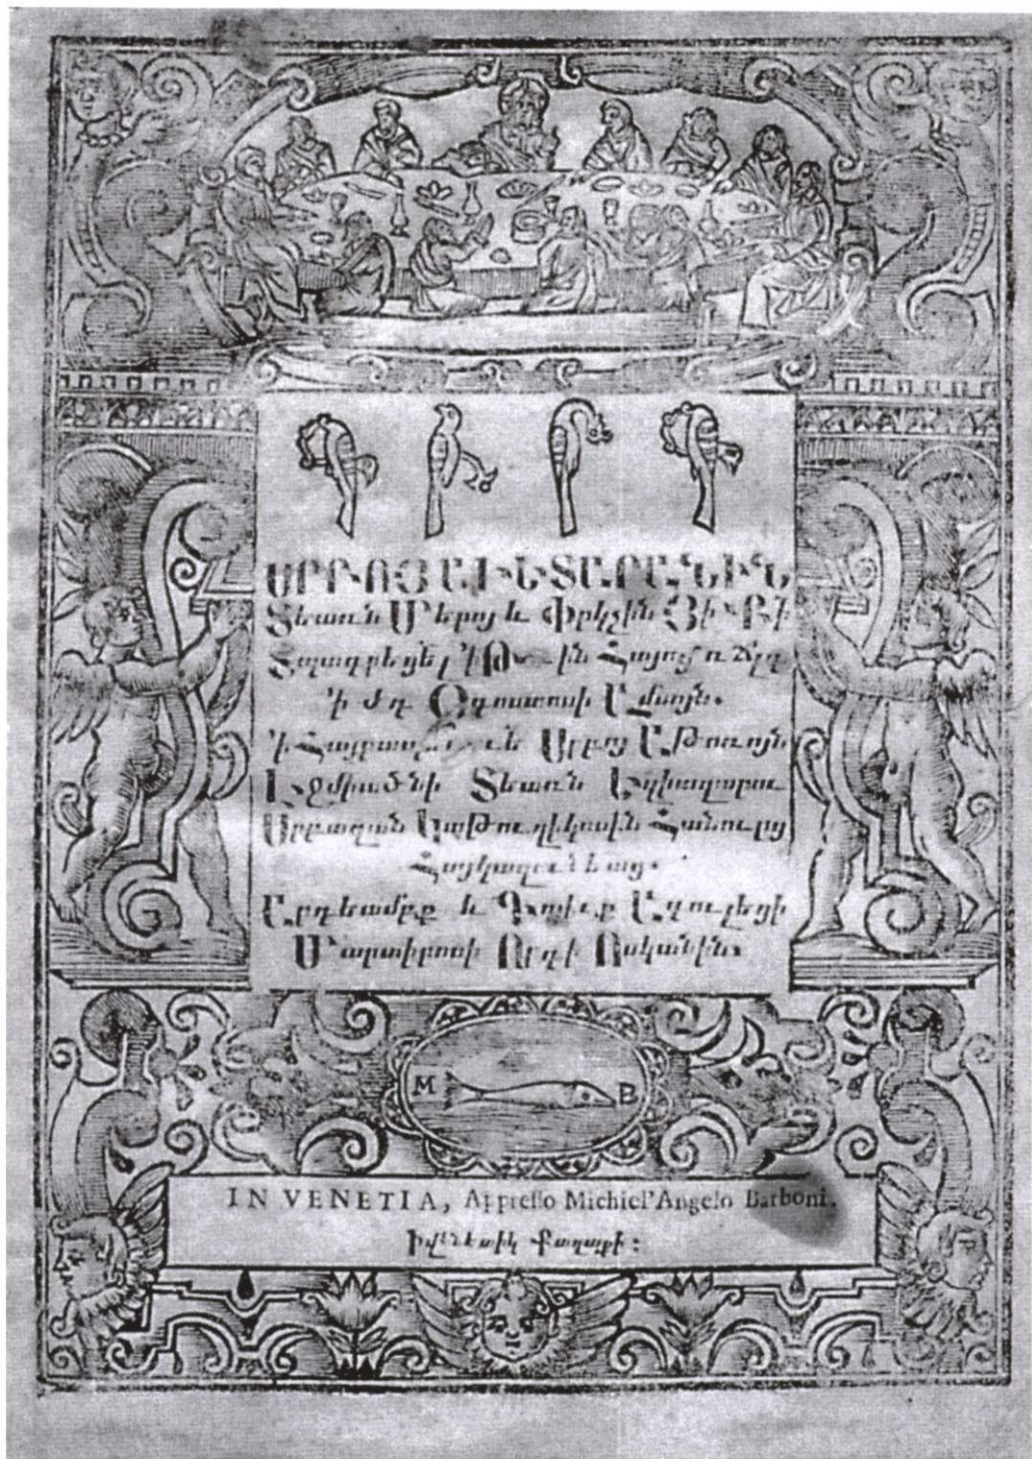 ՍՐԲՈՅ ԱՒԵՏԱՐԱՆԻՆ
Տեառն Մերոյ և Փրկչին ՅԻ ՔԻ
Տպագրեցել ՛Ի Թվին Հայոց ռ ճլզ
՛ի ժդ Օգոստոսի Ամսոյն.
՛ի Սրբոյ Աթոռոյն
Էջմիածնի Տեառն Եղիազարու
Սրբազան Կաթուղիկոսին Հանուրց
Հայկազունեաց.
Արդեամբք և Գոյիւք Ագուլեցի
Մարտիրոսի Որդի Ոսկանին.
M B
IN VENETIA, Appresso Michiel'Angelo Barboni.
իվէնէտիկ Քաղաքի :